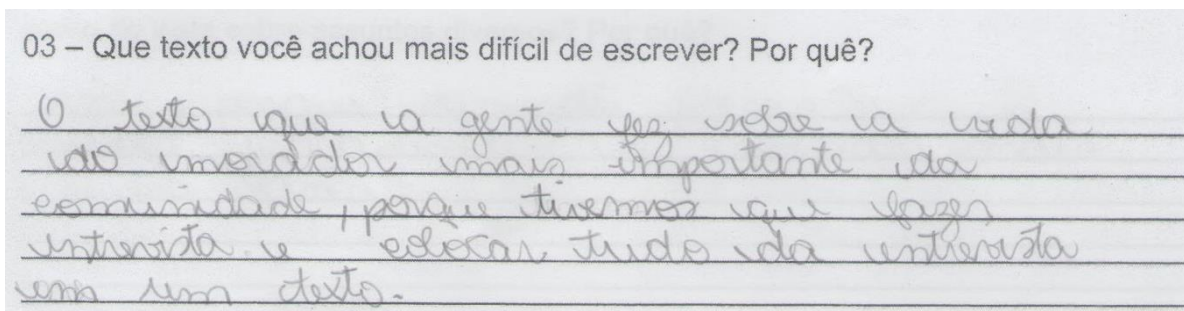 03 – Que texto você achou mais difícil de escrever? Por quê?
O texto que a gente fez sobre a vida
do morador mais importante da
comunidade, porque tivemos que fazer
entrevista e colocar tudo da entrevista
em um texto.